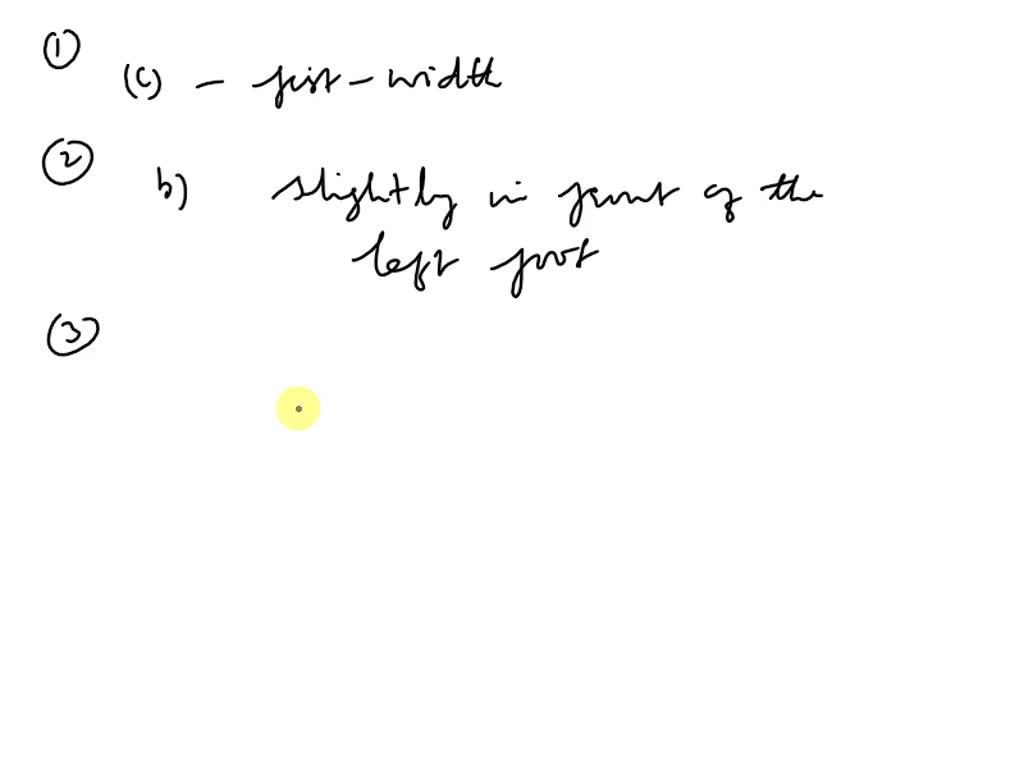 ①
(c) - fist-width
②
b) slightly in front of the
left foot
③